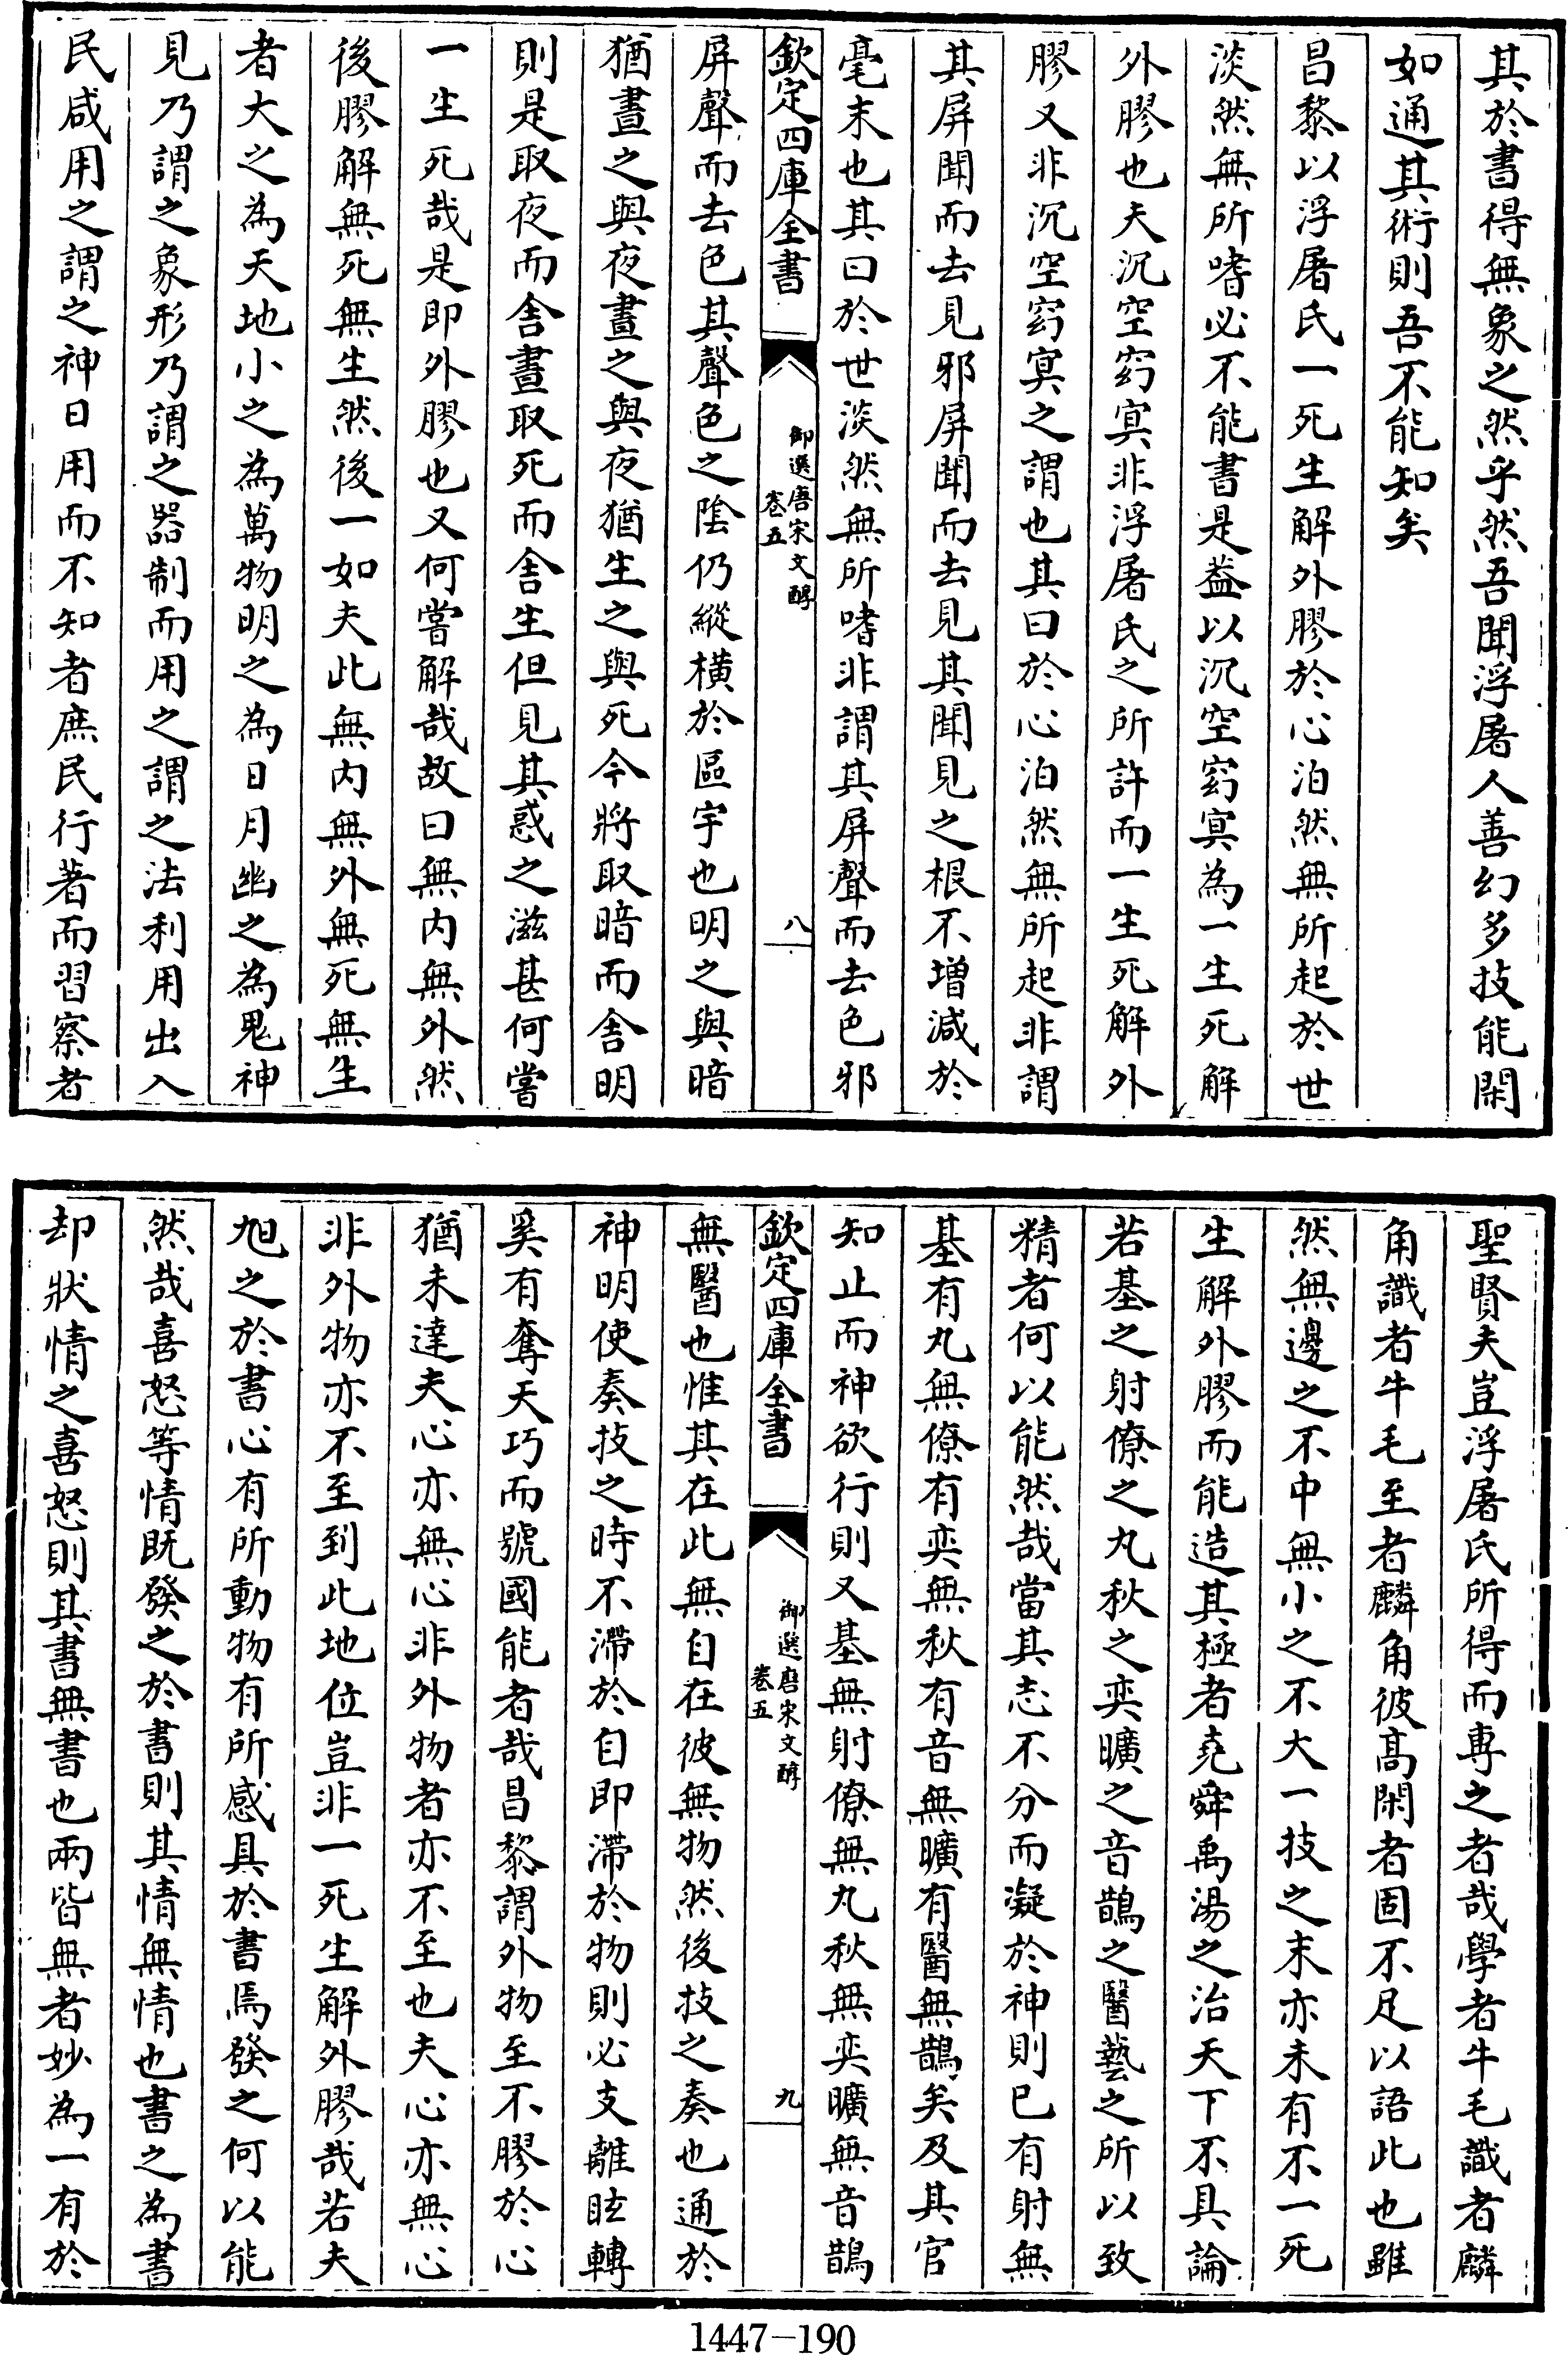 其於書得無象之然乎然吾聞浮屠人善幻多技能閑
如通其術則吾不能知矣
昌黎以浮屠氏一死生解外膠於心泊然無所起於世
淡然無所嗜必不能書是葢以沉空窈冥為一生死解
外膠也夫沉空窈冥非浮屠氏之所許而一生死解外
膠又非沉空窈冥之謂也其曰於心泊然無所起非謂
其屏聞而去見邪屏聞而去見其聞見之根不增減於
毫末也其曰於世淡然無所嗜非謂其屏聲而去色邪
欽定四庫全書
御選唐宋文醇
卷五
八
屏聲而去色其聲色之陰仍縱橫於區宇也明之與暗
猶晝之與夜晝之與夜猶生之與死今將取暗而舍明
則是取夜而舍晝取死而舍生但見其惑之滋甚何嘗
一生死哉是即外膠也又何嘗解哉故曰無内無外然
後膠解無死無生然後一如夫此無内無外無死無生
者大之為天地小之為萬物明之為日月幽之為鬼神
見乃謂之象形乃謂之器制而用之謂之法利用出入
民咸用之謂之神日用而不知者庶民行著而習察者
聖賢夫豈浮屠氏所得而專之者哉學者牛毛識者麟
角識者牛毛至者麟角彼髙閑者固不足以語此也雖
然無邊之不中無小之不大一技之末亦未有不一死
生解外膠而能造其極者堯舜禹湯之治天下不具論
若基之射僚之丸秋之奕曠之音鵲之醫藝之所以致
精者何以能然哉當其志不分而凝於神則已有射無
基有丸無僚有奕無秋有音無曠有醫無鵲矣及其官
知止而神欲行則又基無射僚無丸秋無奕曠無音鵲
欽定四庫全書
御選唐宋文醇
卷五
九
無醫也惟其在此無自在彼無物然後技之奏也通於
神明使奏技之時不滯於自即滯於物則必支離眩轉
奚有奪天巧而號國能者哉昌黎謂外物至不膠於心
猶未達夫心亦無心非外物者亦不至也夫心亦無心
非外物亦不至到此地位豈非一死生解外膠哉若夫
旭之於書心有所動物有所感具於書焉發之何以能
然哉喜怒等情既發之於書則其情無情也書之為書
却狀情之喜怒則其書無書也兩皆無者妙為一有於